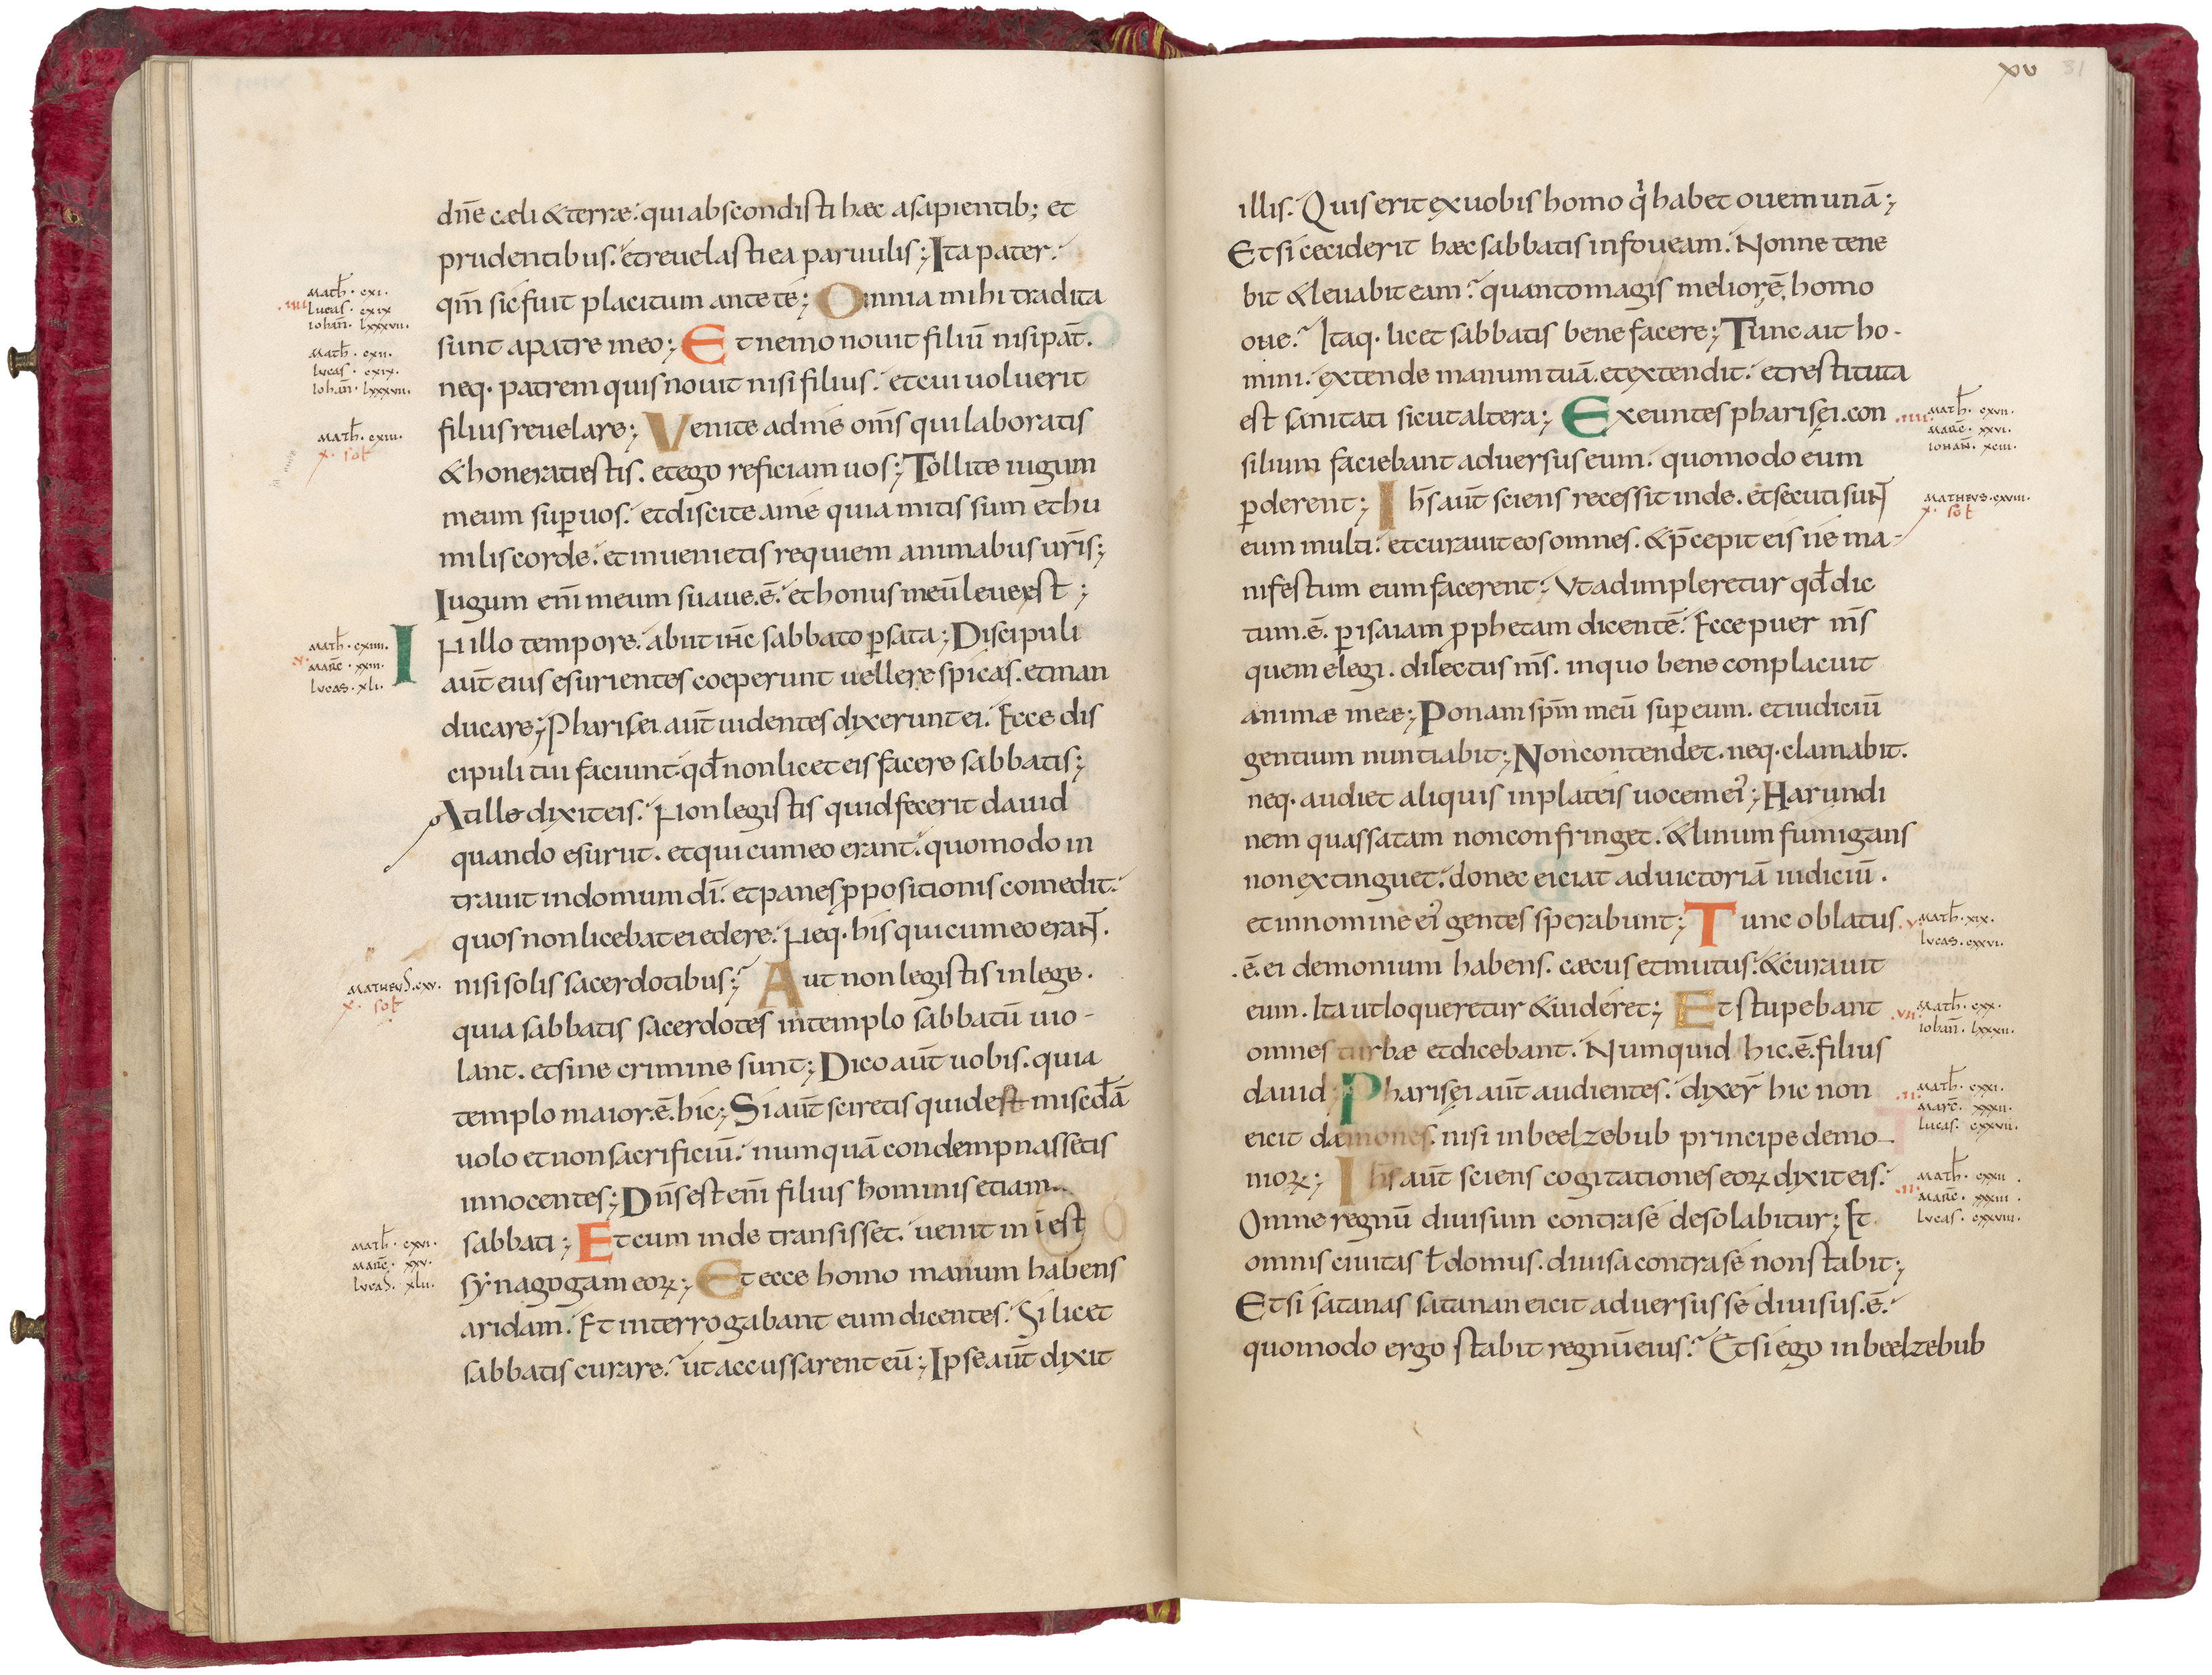 dñe cæli & terræ. qui abscondisti hæc a sapientib; et
prudentibus. et reuelasti ea paruulis; Ita pater.
qm̄ sic fuit placitum ante te; Omnia mihi tradita
sunt a patre meo; Et nemo nouit filiū nisi pat̄.
neq· patrem quis nouit nisi filius. et cui uoluerit
filius reuelare; Venite ad me om̄s qui laboratis
& honerati estis. et ego reficiam uos; Tollite iugum
meum sup uos. et discite a me quia mitis sum et hu
milis corde. et inuenietis requiem animabus ur̄is;
Iugum eni̅ meum suaue.ē. et honus meū leue est;
IN illo tempore. abiit ih̅c sabbato p sata; Discipuli
aūt eius esurientes coeperunt uellere spicas. et man
ducare; Pharisei aūt uidentes dixerunt ei. Ecce dis
cipuli tui faciunt. qd̄ non licet eis facere sabbatis;
At ille dixit eis. Non legistis quid fecerit dauid
quando esuriit. et qui cum eo erant. quomodo in
trauit in domum dī. et panes ppositionis comedit.
quos non licebat ei edere. Neq· his qui cum eo erant.
nisi solis sacerdotibus; Aut non legistis in lege.
quia sabbatis sacerdotes in templo sabbatū uio-
lant. et sine crimine sunt; Dico aūt uobis. quia
templo maior.ē. hic; Si aūt sciretis quid est mised̄ā
uolo et non sacrificiū. numquā condempnassetis
innocentes; Dn̄s est eni̅ filius hominis etiam
sabbati; Et cum inde transisset. uenit in iest
synagogam eoꝝ; Et ecce homo manum habens
aridam. Et interrogabant eum dicentes. Si licet
sabbatis curare. ut accussarent eū; Ipse aūt dixit
Math̄· cxi.
.iiii. Lucas· cxix
Iohan̄· lxxxvii.
Math̄· cxii.
Lucas· cxix.
Iohan̄· lxxxvii.
Math̄· cxiii.
x. sol̄
Math̄· cxiiii.
Marc̄· xxiii.
Lucas· xli.
Matheus· cxv.
x. sol̄
Math̄· cxvi.
Marc̄· xxv.
Lucas· xlii.
xv 31
illis. Quis erit ex uobis homo qi habet ouem unā;
Et si ceciderit hæc sabbatis in foueam. Nonne tene
bit & leuabit eam. quanto magis melior ē homo
oue. Itaq· licet sabbatis bene facere; Tunc ait ho-
mini. extende manum tuā. et extendit. et restituta
est sanitati sicut altera; Exeuntes pharisęi. con
silium faciebant aduersus eum. quomodo eum
pderent; Ih̅s aūt sciens recessit inde. et secuti sunt
eum multi. et curauit eos omnes. & p̄cepit eis ne ma-
nifestum eum facerent; Vt adimpleretur qd̄ dic
tum.ē. p isaiam pphetam dicentē. Ecce puer m̄s
quem elegi. dilectus m̄s. in quo bene conplacuit
animæ meæ; Ponam sp̄m meū sup eum. et iudiciū
gentium nuntiabit; Non contendet. neq· clamabit.
neq· audiet aliquis in plateis uocem ei'; Harundi
nem quassatam non confringet. & linum fumigans
non extinguet. donec eiciat ad uictoriā iudiciū.
et in nomine ei' gentes sperabunt; Tunc oblatus
.ē. ei demonium habens. cæcus et mutus. & curauit
eum. Ita ut loqueretur & uideret; Et stupebant
omnes turbæ et dicebant. Numquid hic.ē. filius
dauid; Pharisęi aūt audientes. dixer̄ hic non
eicit dæmones. nisi in beelzebub principe demo-
nioꝝ; Ih̅s aūt sciens cogitationes eoꝝ dixit eis.
Omne regnū diuisum contra se desolabitur; Et
omnis ciuitas ł domus. diuisa contra se non stabit;
Et si satanas satanan eicit aduersus se diuisus.ē.
quomodo ergo stabit regnū eius. Et si ego in beelzebub
.iiii. Math̄· cxvii.
Marc̄· xxvi.
Iohan̄· xciii.
Matheus· cxviii.
x. sol̄
.v. Math̄· xix.
Lucas· cxxvi.
.vii. Math̄· cxx.
Iohan̄· lxxxii.
.ii. Math̄· cxxi.
Marc̄· xxxii.
Lucas· cxxvii.
.ii. Math̄· cxxii.
Marc̄· xxxiii.
Lucas· cxxviii.